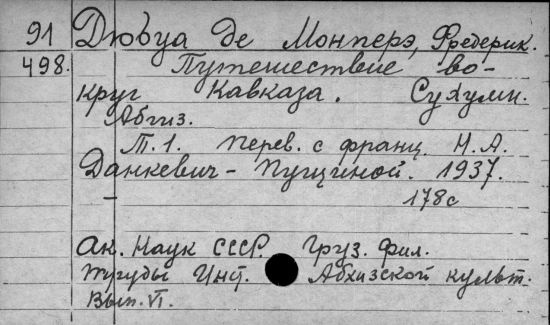 91 Дюбуа де Монперэ, Фредерик.
498. Путешествие во-
круг Кавказа. Сухуми.
Абгиз.
Т. 1. перев. с франц. Н.А.
Данкевич-Пущиной. 1937.
178с
Ак. Наук СССР. Груз. Фил.
Труды Инст. Абхазской культ.
Вып. VI.